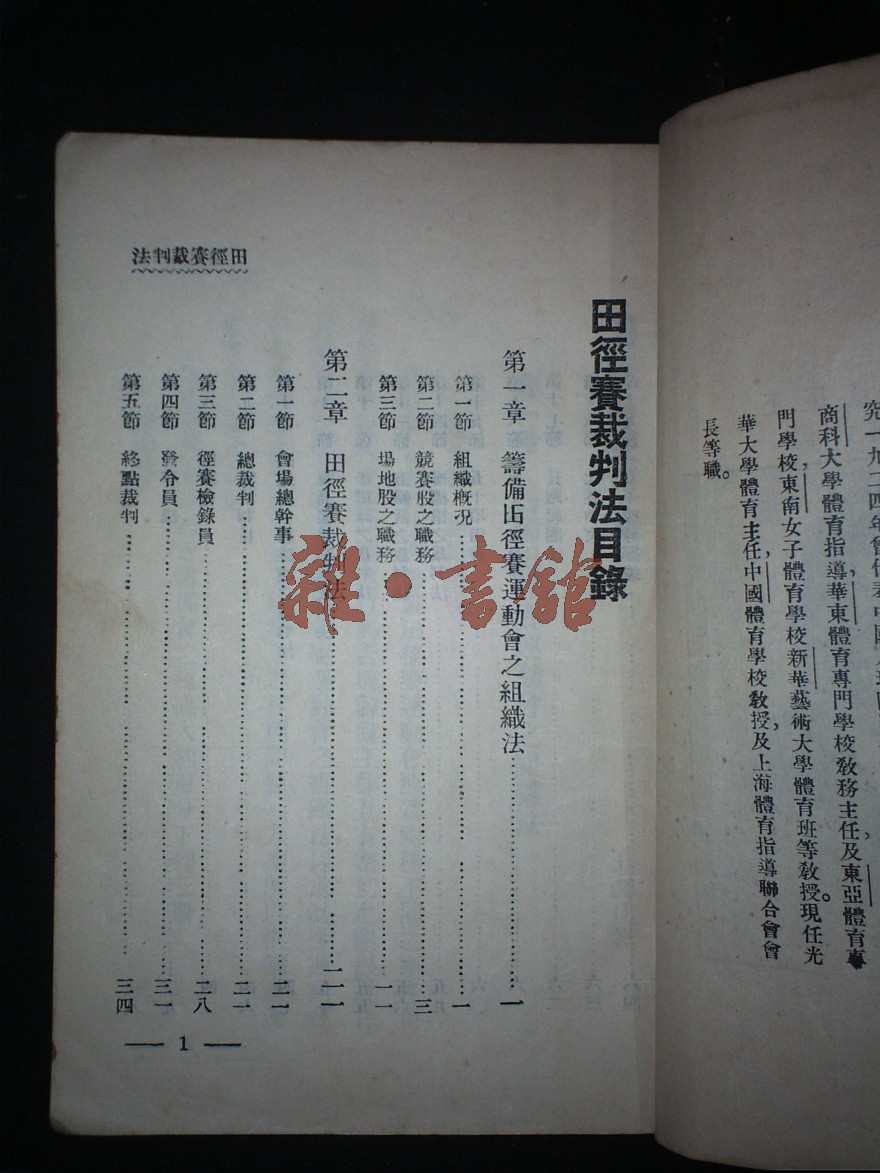 究一九二四年曾代表中國
商科大學體育指導,華東體育專門學校教務主任及東亞體育專
門學校,東南女子體育學校新華藝術大學體育班等教授。現任光
華大學體育主任,中國體育學校教授,及上海體育指導聯合會會
長等職。
田徑賽裁判法
田徑賽裁判法目錄
第一章 籌備田徑賽運動會之組織法……一
第一節 組織概況……一
第二節 競賽股之職務……三
第三節 場地股之職務……一一
第二章 田徑賽裁判法……二一
第一節 會場總幹事……二一
第二節 總裁判……二一
第三節 徑賽檢錄員……二八
第四節 發令員……三一
第五節 終點裁判……三四
— 1 —
雜·書館